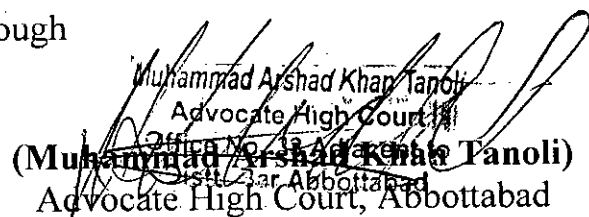 ough
Muhammad Arshad Khan Tanoli
Advocate High Court
Office No. 33 Adjacent to
Distt. Bar Abbottabad
(Muhammad Arshad Khan Tanoli)
Advocate High Court, Abbottabad